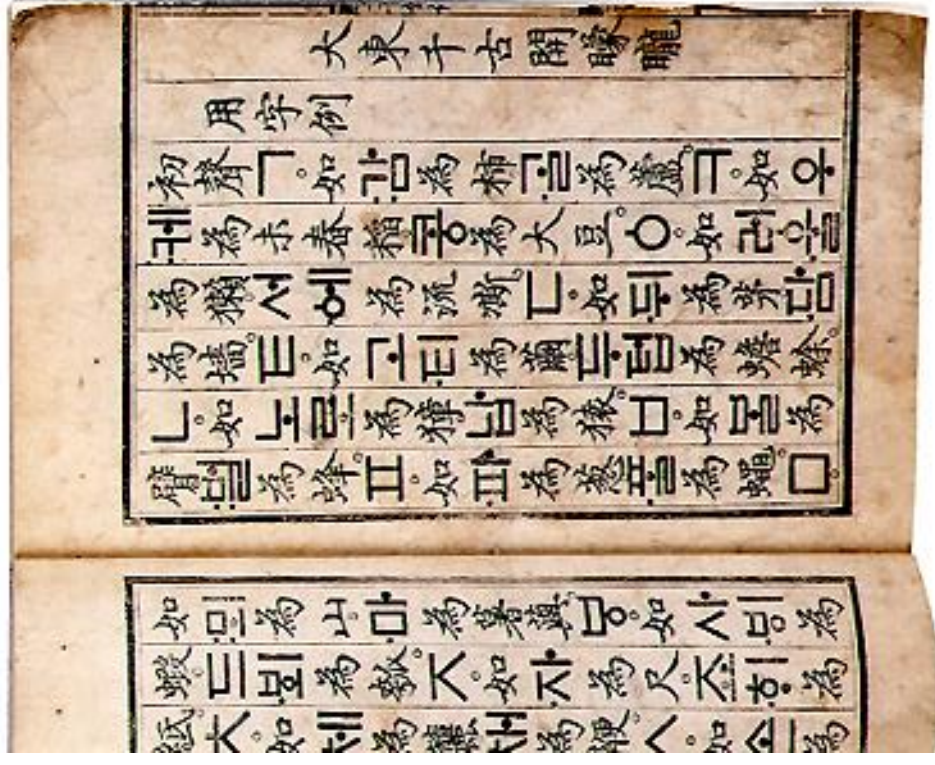 大東千古開矇矓
用字例
初聲ㄱ。如감為柿。ᄀᆞᆯ為蘆。ㅋ。如우
케為未舂稻。콩為大豆。ㆁ。如러ᅌᅮᆯ
為獺。서ᅌᅦ為流凘。ㄷ。如뒤為茅。담
為墻。ㅌ。如고티為繭。두텁為蟾蜍。
ㄴ。如노로為獐。납為猿。ㅂ。如ᄇᆞᆯ為
臂。벌為蜂。ㅍ。如파為葱。ᄑᆞᆯ為蠅。ㅁ
如뫼為山。마為薯藇。ㅸ。如사ᄫᅵ為
蝦。드ᄫᅴ為瓠。ㅈ。如자為尺。죠ᄒᆡ為
紙。ㅊ。如체為籭。채為鞭。ㅅ。如손為